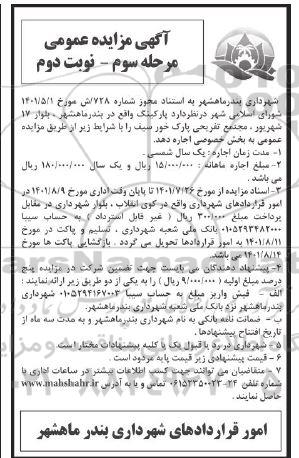 آگهی مزایده عمومی
مرحله سوم - نوبت دوم
شهرداری بندرماهشهر به استناد مجوز شماره ۷۲۸/ش مورخ ۱۴۰۱/۵/۱
شورای اسلامی شهر درنظردارد پارکینگ واقع در بندرماهشهر ، بلوار ۱۷
شهریور ، مجتمع تفریحی پارک خور سیف را با شرایط زیر از طریق مزایده
عمومی به بخش خصوصی اجاره دهد.
۱- مدت زمان اجاره : یک سال شمسی.
۲- مبلغ اجاره ماهانه : ۱۵/۰۰۰/۰۰۰ ریال و یک سال ۱۸۰/۰۰۰/۰۰۰ ریال
می باشد .
۳- اسناد مزایده از مورخ ۱۴۰۱/۷/۲۶ تا پایان وقت اداری مورخ ۱۴۰۱/۸/۹ در
امور قراردادهای شهرداری واقع در کوی انقلاب ، بلوار شهرداری در مقابل
پرداخت مبلغ ۳۰۰/۰۰۰ ریال ( غیر قابل استرداد ) به حساب سیبا
۰۱۰۵۲۹۳۴۸۲۰۰۰ بانک ملی شعبه شهرداری ، تسلیم و پاکت در مورخ
۱۴۰۱/۸/۱۱ به امور قراردادها تحویل می گردد . بازگشایی پاکت ها مورخ
۱۴۰۱/۸/۱۴ می باشد.
۴- پیشنهاد دهندگان می بایست جهت تضمین شرکت در مزایده پنج
درصد مبلغ اولیه ( ۹/۰۰۰/۰۰۰ ریال ) را به یکی از دو طریق زیر ارائه نمایند :
الف - فیش واریز مبلغ به حساب سیبا ۰۱۰۵۲۹۴۱۶۷۰۰۳ شهرداری
بندرماهشهر نزد بانک ملی شعبه شهرداری بندرماهشهر.
ب - ضمانت نامه بانکی به نام شهرداری بندرماهشهر و به مدت سه ماه از
تاریخ افتتاح پیشنهادها .
۵ - شهرداری در رد یا قبول یک یا کلیه پیشنهادات مختار است .
۶ - قیمت پیشنهادی زیر قیمت پایه مردود است .
۷ - متقاضیان می توانند جهت کسب اطلاعات بیشتر در ساعات اداری با
شماره تلفن ۲۴-۰۶۱۵۲۳۵۰۰۲۳ تماس و یا به آدرس www.mahshahr.ir
حاصل نمایند .
امور قراردادهای شهرداری بندر ماهشهر